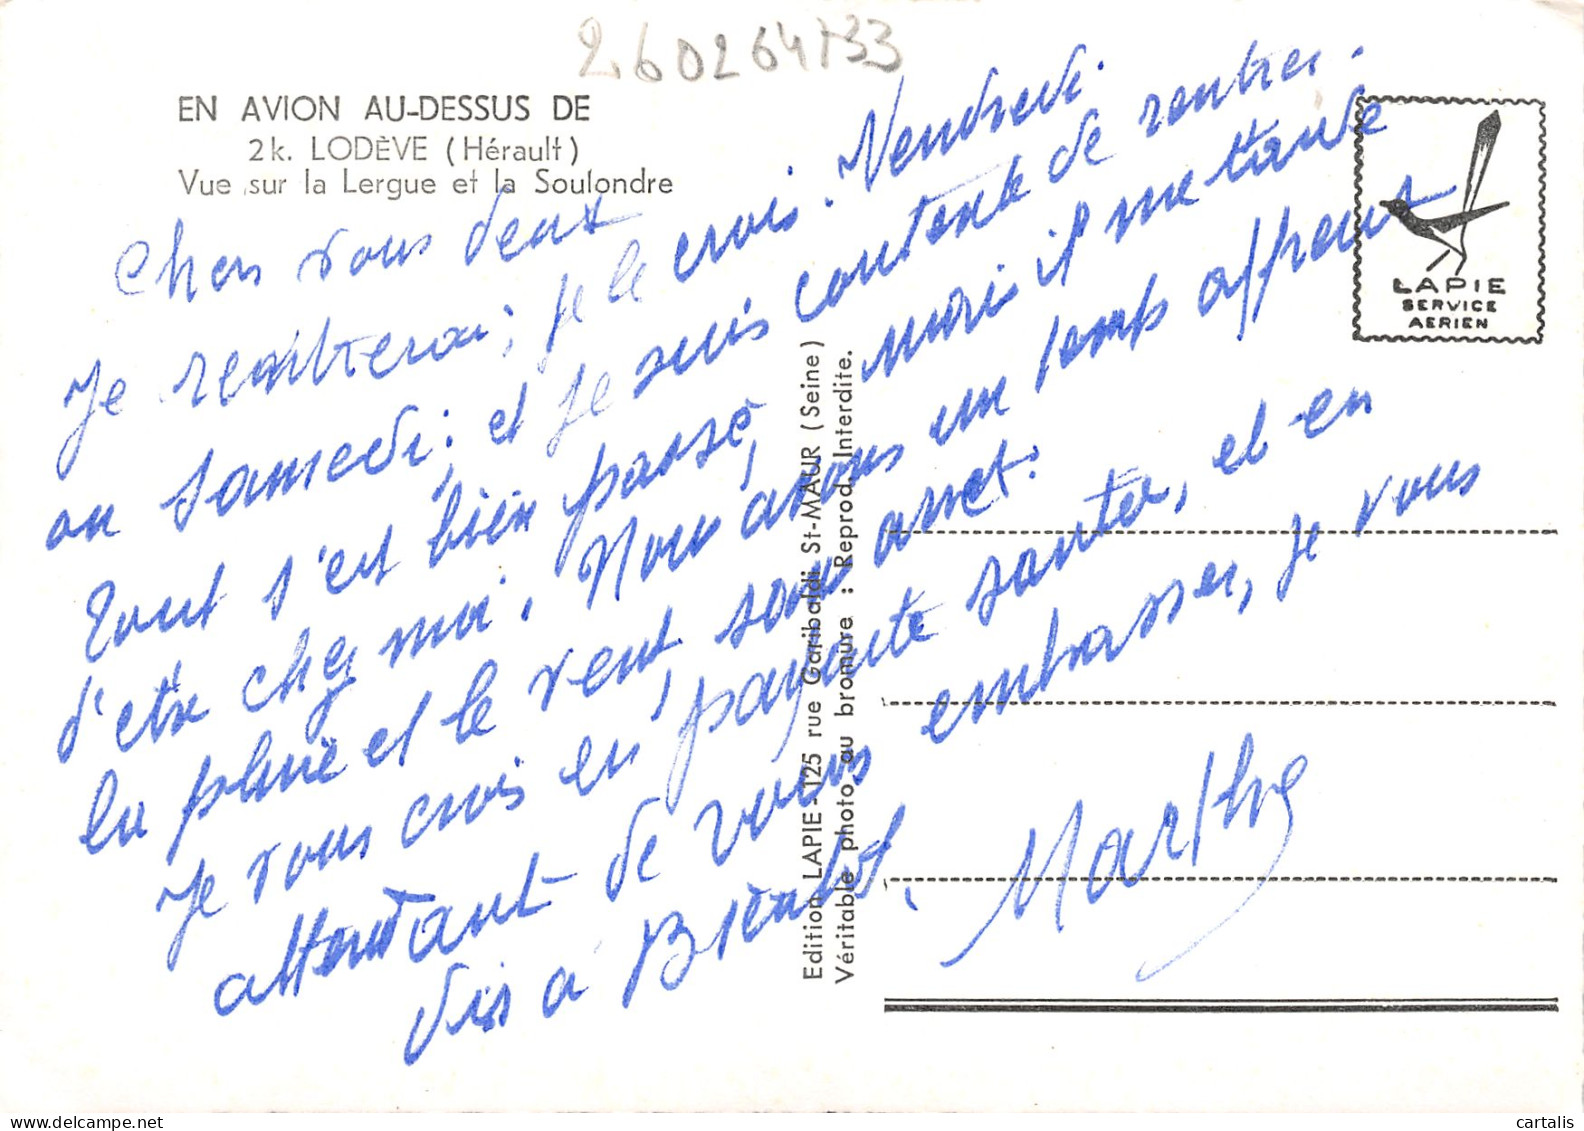 2.60264733
EN AVION AU-DESSUS DE
2 k. LODÈVE (Hérault)
Vue sur la Lergue et la Soulondre
LAPIE
SERVICE
AERIEN
Chers vous deux
Je rentrerai, je le crois. Vendredi
ou samedi. et je suis contente de rentrer.
Tout s'est bien passé, mais il me tarde
d'etre chez moi. Nous avons un temps affreux
la pluie et le vent, sans arret.
Je vous crois en, payante santer, et en
attendant de vous embrasser, je vous
dis a Bientot.
Marthe
Edition LAPIE - 125 rue Garibaldi St-MAUR (Seine)
Véritable photo au bromure : Reprod. Interdite.
delcampe.net
cartalis